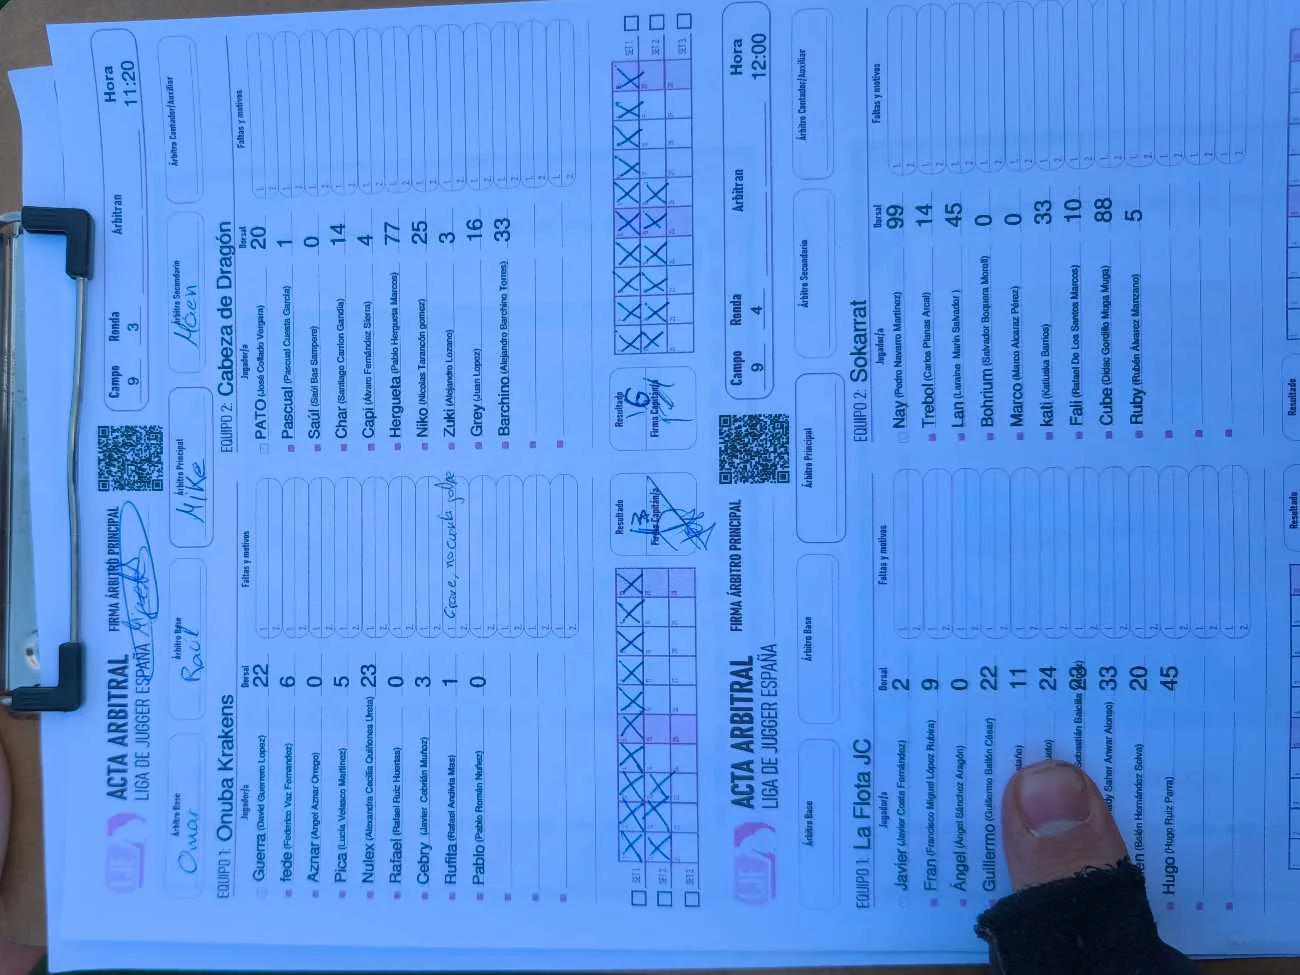 ACTA ARBITRAL
LIGA DE JUGGER ESPAÑA
FIRMA ÁRBITRO PRINCIPAL
Campo
9
Ronda
3
Arbitran
Hora
11:20
Árbitro Base
Omar
Árbitro Base
Raúl
Árbitro Principal
Mike
Árbitro Secundario
Árbitro Contador/Auxiliar
EQUIPO 1: Onuba Krakens
Jugador/a Dorsal Faltas y motivos
Guerra (David Guerrero Lopez) 22
fede (Federico Vaz Fernandez) 6
Aznar (Angel Aznar Orrego) 0
Pica (Lucía Velasco Martínez) 5
Nulex (Alexandra Cecilia Quiñones Ureta) 23
Rafael (Rafael Ruiz Huertas) 0
Cebry (Javier Cebrián Muñoz) 3
Rufita (Rafael Andivia Mas) 1 Grave, no cuenta golpe
Pablo (Pablo Román Nuñez) 0
EQUIPO 2: Cabeza de Dragón
Jugador/a Dorsal Faltas y motivos
PATO (José Collado Vergara) 20
Pascual (Pascual Cuesta García) 1
Saúl (Saúl Bas Sampere) 0
Char (Santiago Carrion Gandia) 14
Capi (Álvaro Fernández Sierra) 4
Hergueta (Pablo Hergueta Marcos) 77
Niko (Nicolas Tarancón gomez) 25
Zuki (Alejandro Lozano) 3
Grey (Juan Lopez) 16
Barchino (Alejandro Barchino Torres) 33
SET 1
SET 2
SET 3
Resultado
13
Firma Capitán/a
Resultado
16
Firma Capitán/a
SET 1
SET 2
SET 3
ACTA ARBITRAL
LIGA DE JUGGER ESPAÑA
FIRMA ÁRBITRO PRINCIPAL
Campo
9
Ronda
4
Arbitran
Hora
12:00
Árbitro Base
Árbitro Base
Árbitro Principal
Árbitro Secundario
Árbitro Contador/Auxiliar
EQUIPO 1: La Flota JC
Jugador/a Dorsal Faltas y motivos
Javier (Javier Costa Fernández) 2
Fran (Francisco Miguel López Rubira) 9
Ángel (Angel Sánchez Aragón) 0
Guillermo (Guillermo Bailón César) 22
11
24
33
(Belén Hernández Selva) 20
Hugo (Hugo Ruiz Parra) 45
EQUIPO 2: Sokarrat
Jugador/a Dorsal Faltas y motivos
Nay (Pedro Navarro Martinez) 99
Trebol (Carlos Planas Arcal) 14
Lan (Laraine Marín Salvador) 45
Bohrium (Salvador Boquera Moroll) 0
Marco (Marco Alcaraz Pérez) 0
kati (Katiuska Barrios) 33
Fali (Rafael De Los Santos Marcos) 10
Cube (Didac Gordillo Muga Muga) 88
Ruby (Rubén Álvarez Manzano) 5
Resultado
Resultado